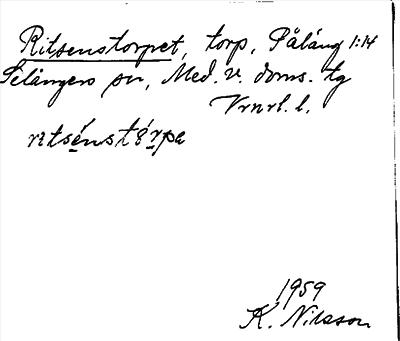 Ritsenstorpet, torp, Påläng 1:14
Selångers sn, Med. v. doms. tg
Vrnrl. l.
ritsénstórpa
1959
K. Nilsson